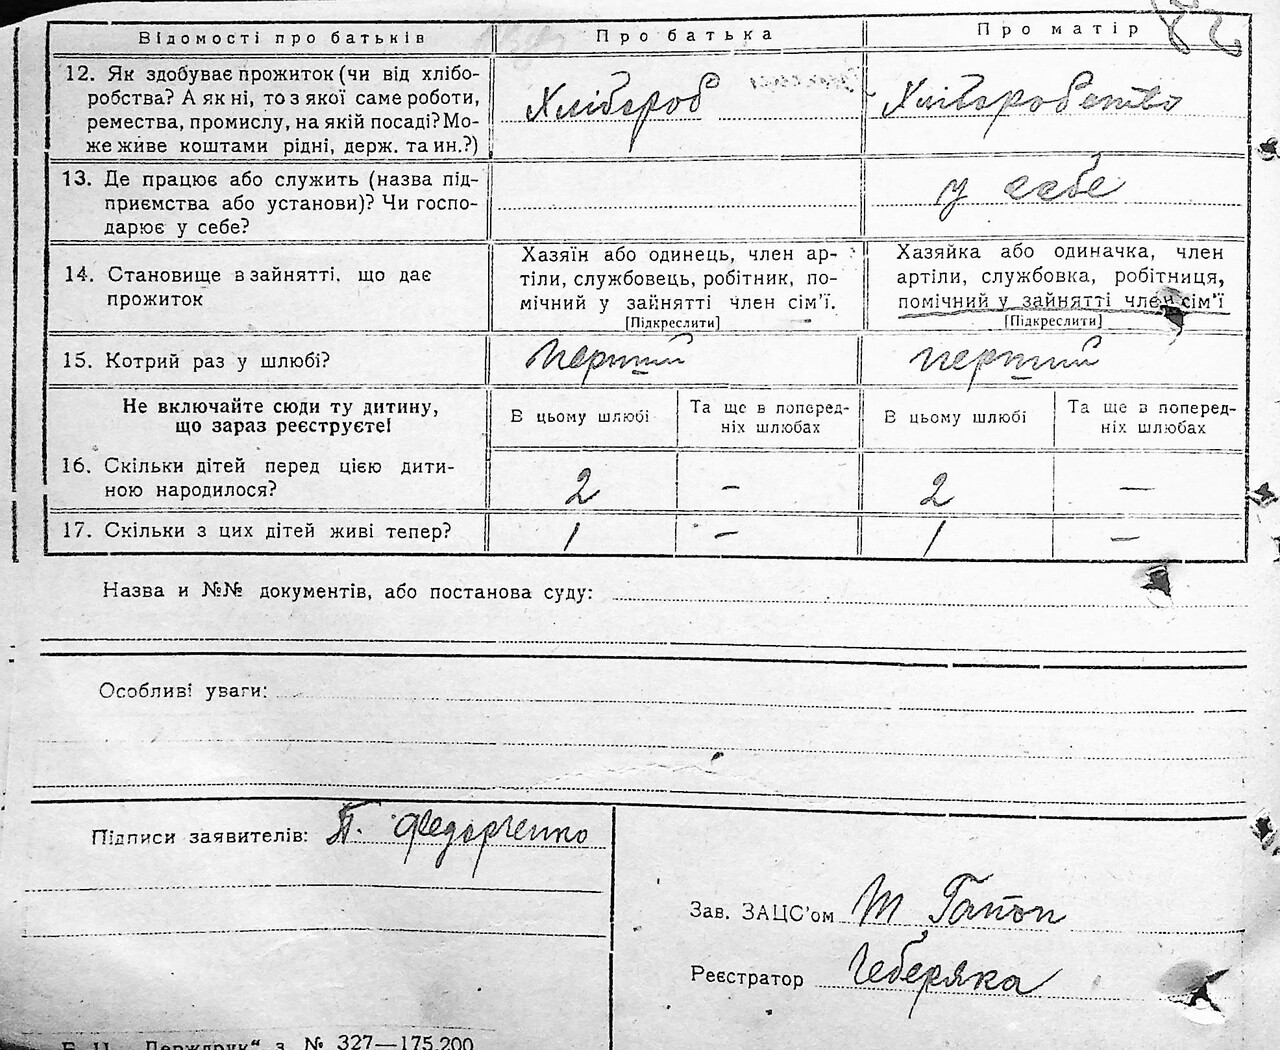 Відомості про батьків
Про батька
Про матір
12. Як здобуває прожиток (чи від хлібо-
робства? А як ні, то з якої саме роботи,
ремества, промислу, на якій посаді? Мо-
же живе коштами рідні, держ. та ин.?)
Хлібороб
Хліборобство
13. Де працює або служить (назва під-
приємства або установи)? Чи госпо-
дарює у себе?
у себе
14. Становище в зайнятті, що дає
прожиток
Хазяїн або одинець, член ар-
тіли, службовець, робітник, по-
мічний у зайнятті член сім'ї.
[Підкреслити]
Хазяйка або одиначка, член
артіли, службовка, робітниця,
помічний у зайнятті член сім'ї
[Підкреслити]
15. Котрий раз у шлюбі?
перший
перший
Не включайте сюди ту дитину,
що зараз реєструєте!
В цьому шлюбі
Та ще в поперед-
ніх шлюбах
В цьому шлюбі
Та ще в поперед-
ніх шлюбах
16. Скільки дітей перед цією дити-
ною народилося?
2
–
2
—
17. Скільки з цих дітей живі тепер?
1
–
1
—
Назва и №№ документів, або постанова суду:
Особливі уваги:
Підписи заявителів: П. Федорченко
Зав. ЗАЦС'ом Т Гапон
Реєстратор Чеберяка
Держдрук“ з. № 327—175.200